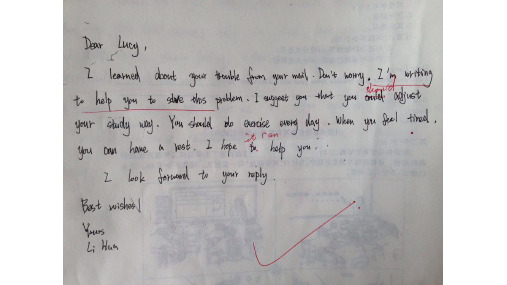 Dear Lucy,
I learned about your trouble from your mail. Don't worry. I'm writing
should
to help you to solve this problem. I suggest you that you could adjust
your study way. You should do exercise every day. When you feel tired,
it can
you can have a rest. I hope to help you.
I look forward to your reply.
Best wishes!
Yours
Li Hua